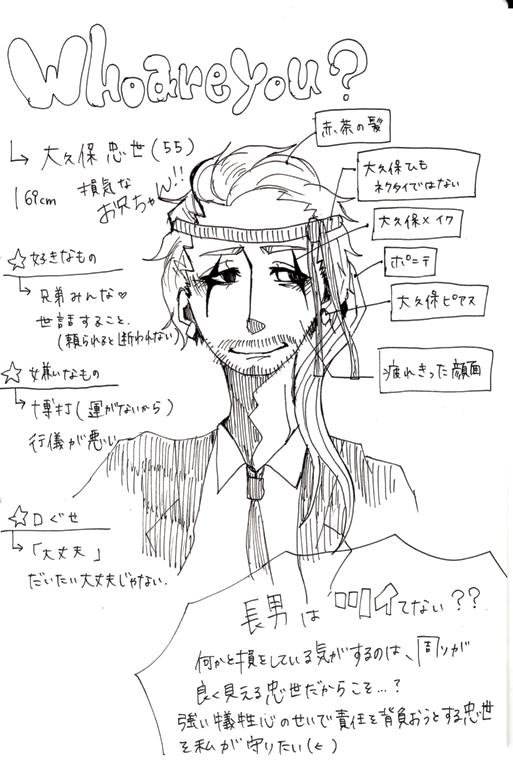 Who are you?
大久保 忠世(55)
169cm
損気な
お兄ちゃん!!
☆好きなもの
兄弟みんな♡
世話すること.
(頼られると断われない)
☆嫌いなもの
博打(運がないから)
行儀が悪い
☆口ぐせ
「大丈夫」
だいたい大丈夫じゃない.
赤、茶の髪
大久保ひも
ネクタイではない
大久保メイク
ポニテ
大久保ピアス
疲れきった顔面
長男はツイてない??
何かと損をしている気がするのは、周りが
良く見える忠世だからこそ…?
強い犠牲心のせいで責任を背負おうとする忠世
を私が守りたい(←)